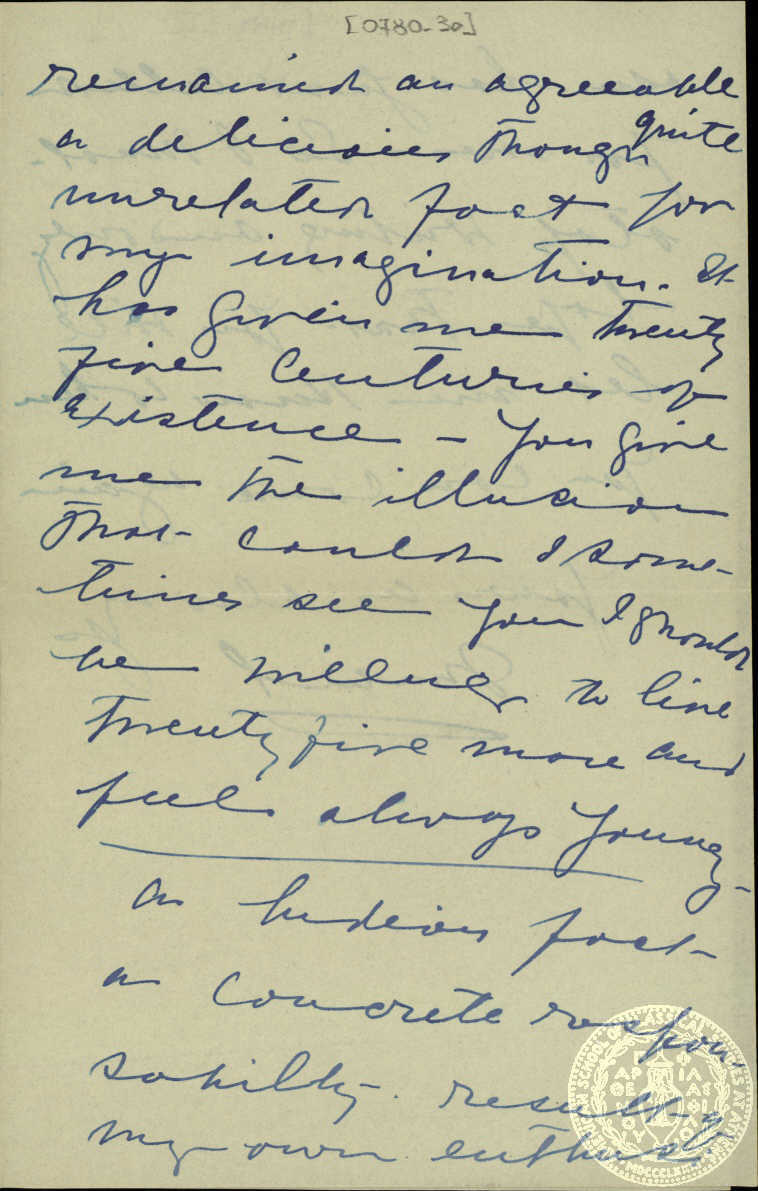 [0780-30]
remained an agreeable
a delicious though quite
unrelated fact for
my imagination. It
has given me twenty
five centuries of
existence – You give
me the illusion
that could I some-
times see you I should
be willing to live
twenty five more and
feel always young –
a hideous fact –
a concrete respon-
sability. result of
my own